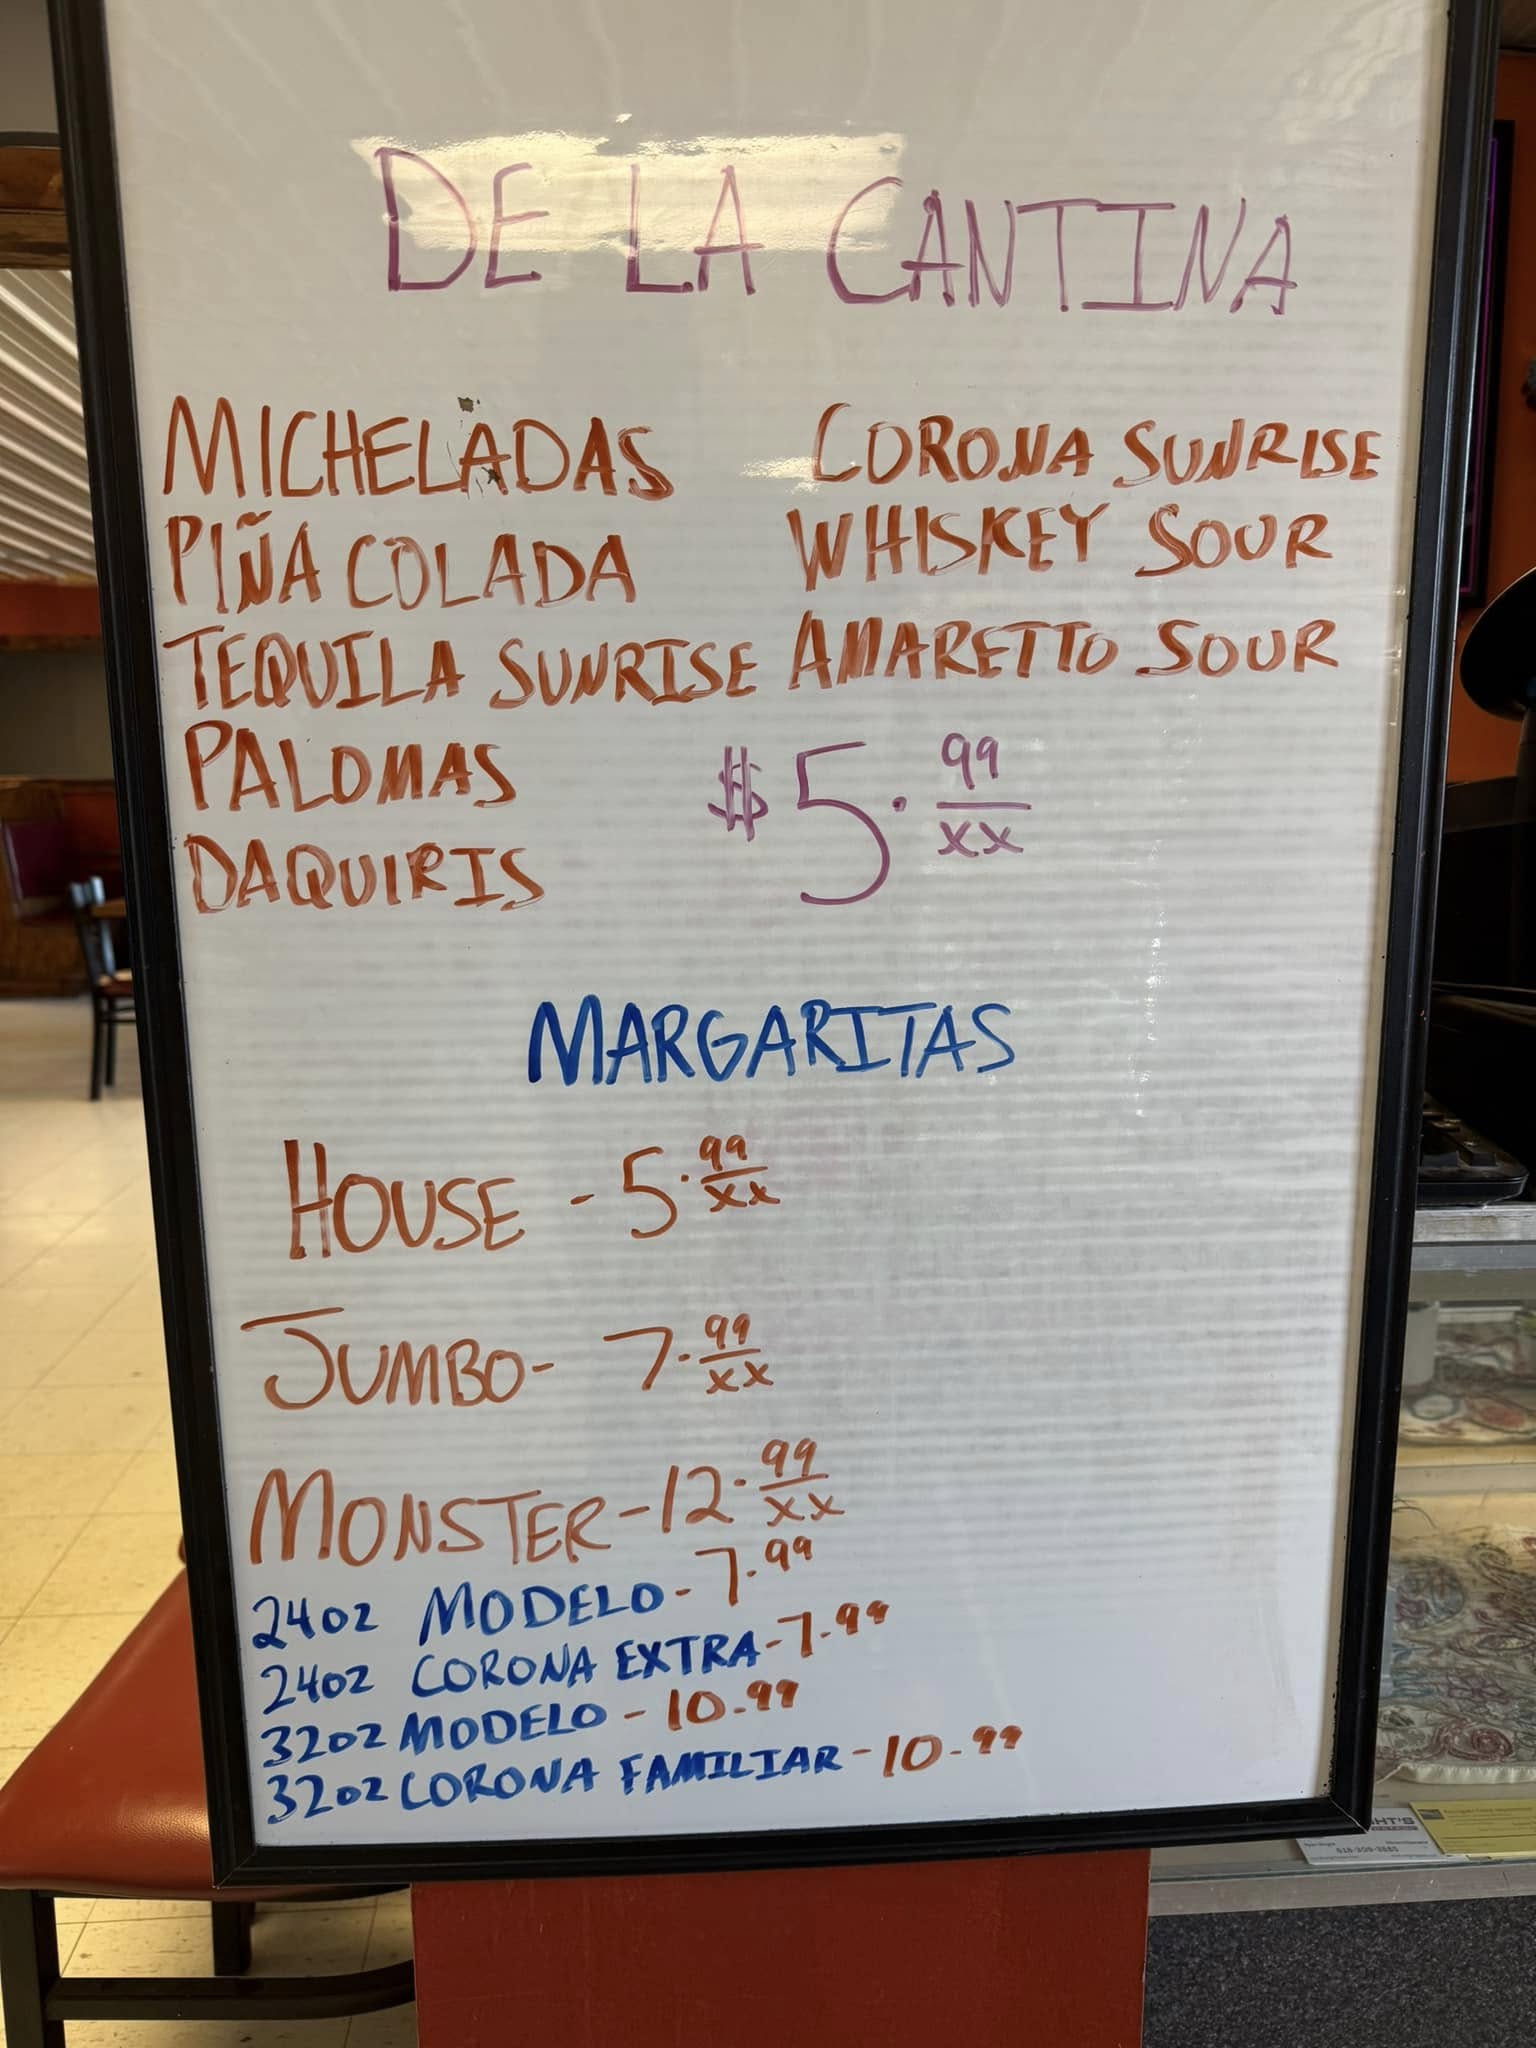 DE LA CANTINA
MICHELADAS
PIÑA COLADA
TEQUILA SUNRISE
PALOMAS
DAQUIRIS
CORONA SUNRISE
WHISKEY SOUR
AMARETTO SOUR
$5.99/xx
MARGARITAS
HOUSE - 5.99/xx
JUMBO - 7.99/xx
MONSTER - 12.99/xx
24oz MODELO - 7.99
24oz CORONA EXTRA - 7.99
32oz MODELO - 10.99
32oz CORONA FAMILIAR - 10.99